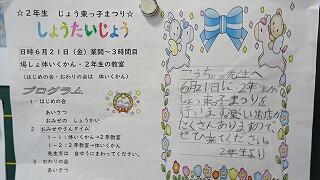 ☆2年生 じょう東っ子まつり☆
しょうたいじょう
日時6月21日(金)業間~3時間目
場しょ体いくかん・2年生の教室
(はじめの会・おわりの会は 体いくかん)
プログラム
1 はじめの会
あいさつ
おみせの しょうかい
2 おみせやさんタイム
1-1:体いくかん→2年教室
1-2:2年教室→体いくかん
先生方は 自ゆうにまわってください。
3 おわりの会
あいさつ
こうちょう先生へ
6月21日に、2年生が
じょう東っ子まつりを
行います。楽しい出店が
たくさんありますので、
ぜひ来てください。
2年生より